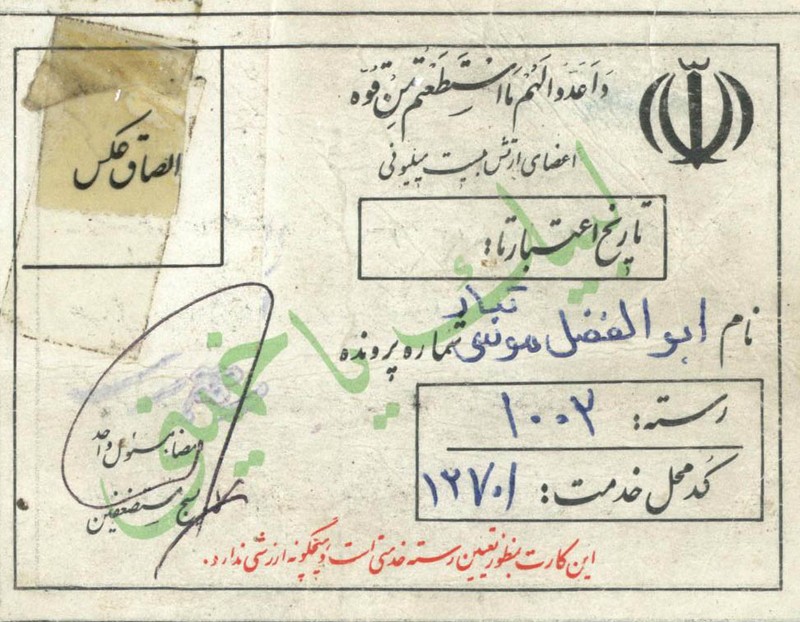 وَاَعِدّوُا لَهُمْ مَا اسْتَطَعْتُمْ مِنْ قُوَّه
اعضای ارتش بیست میلیونی
الصاق عکس
تاریخ اعتبار تا:
نام ابوالفضل مونسی تبار
شماره پرونده
رسته: ۱۰۰۲
کُد محل خدمت: ۱۲۷۰۱
امضاء مسئول واحد
بسیج مستضعفین
این کارت بمنظور تعیین رسته خدمتی است و هیچگونه ارزشی ندارد.
لبیک یا خمینی